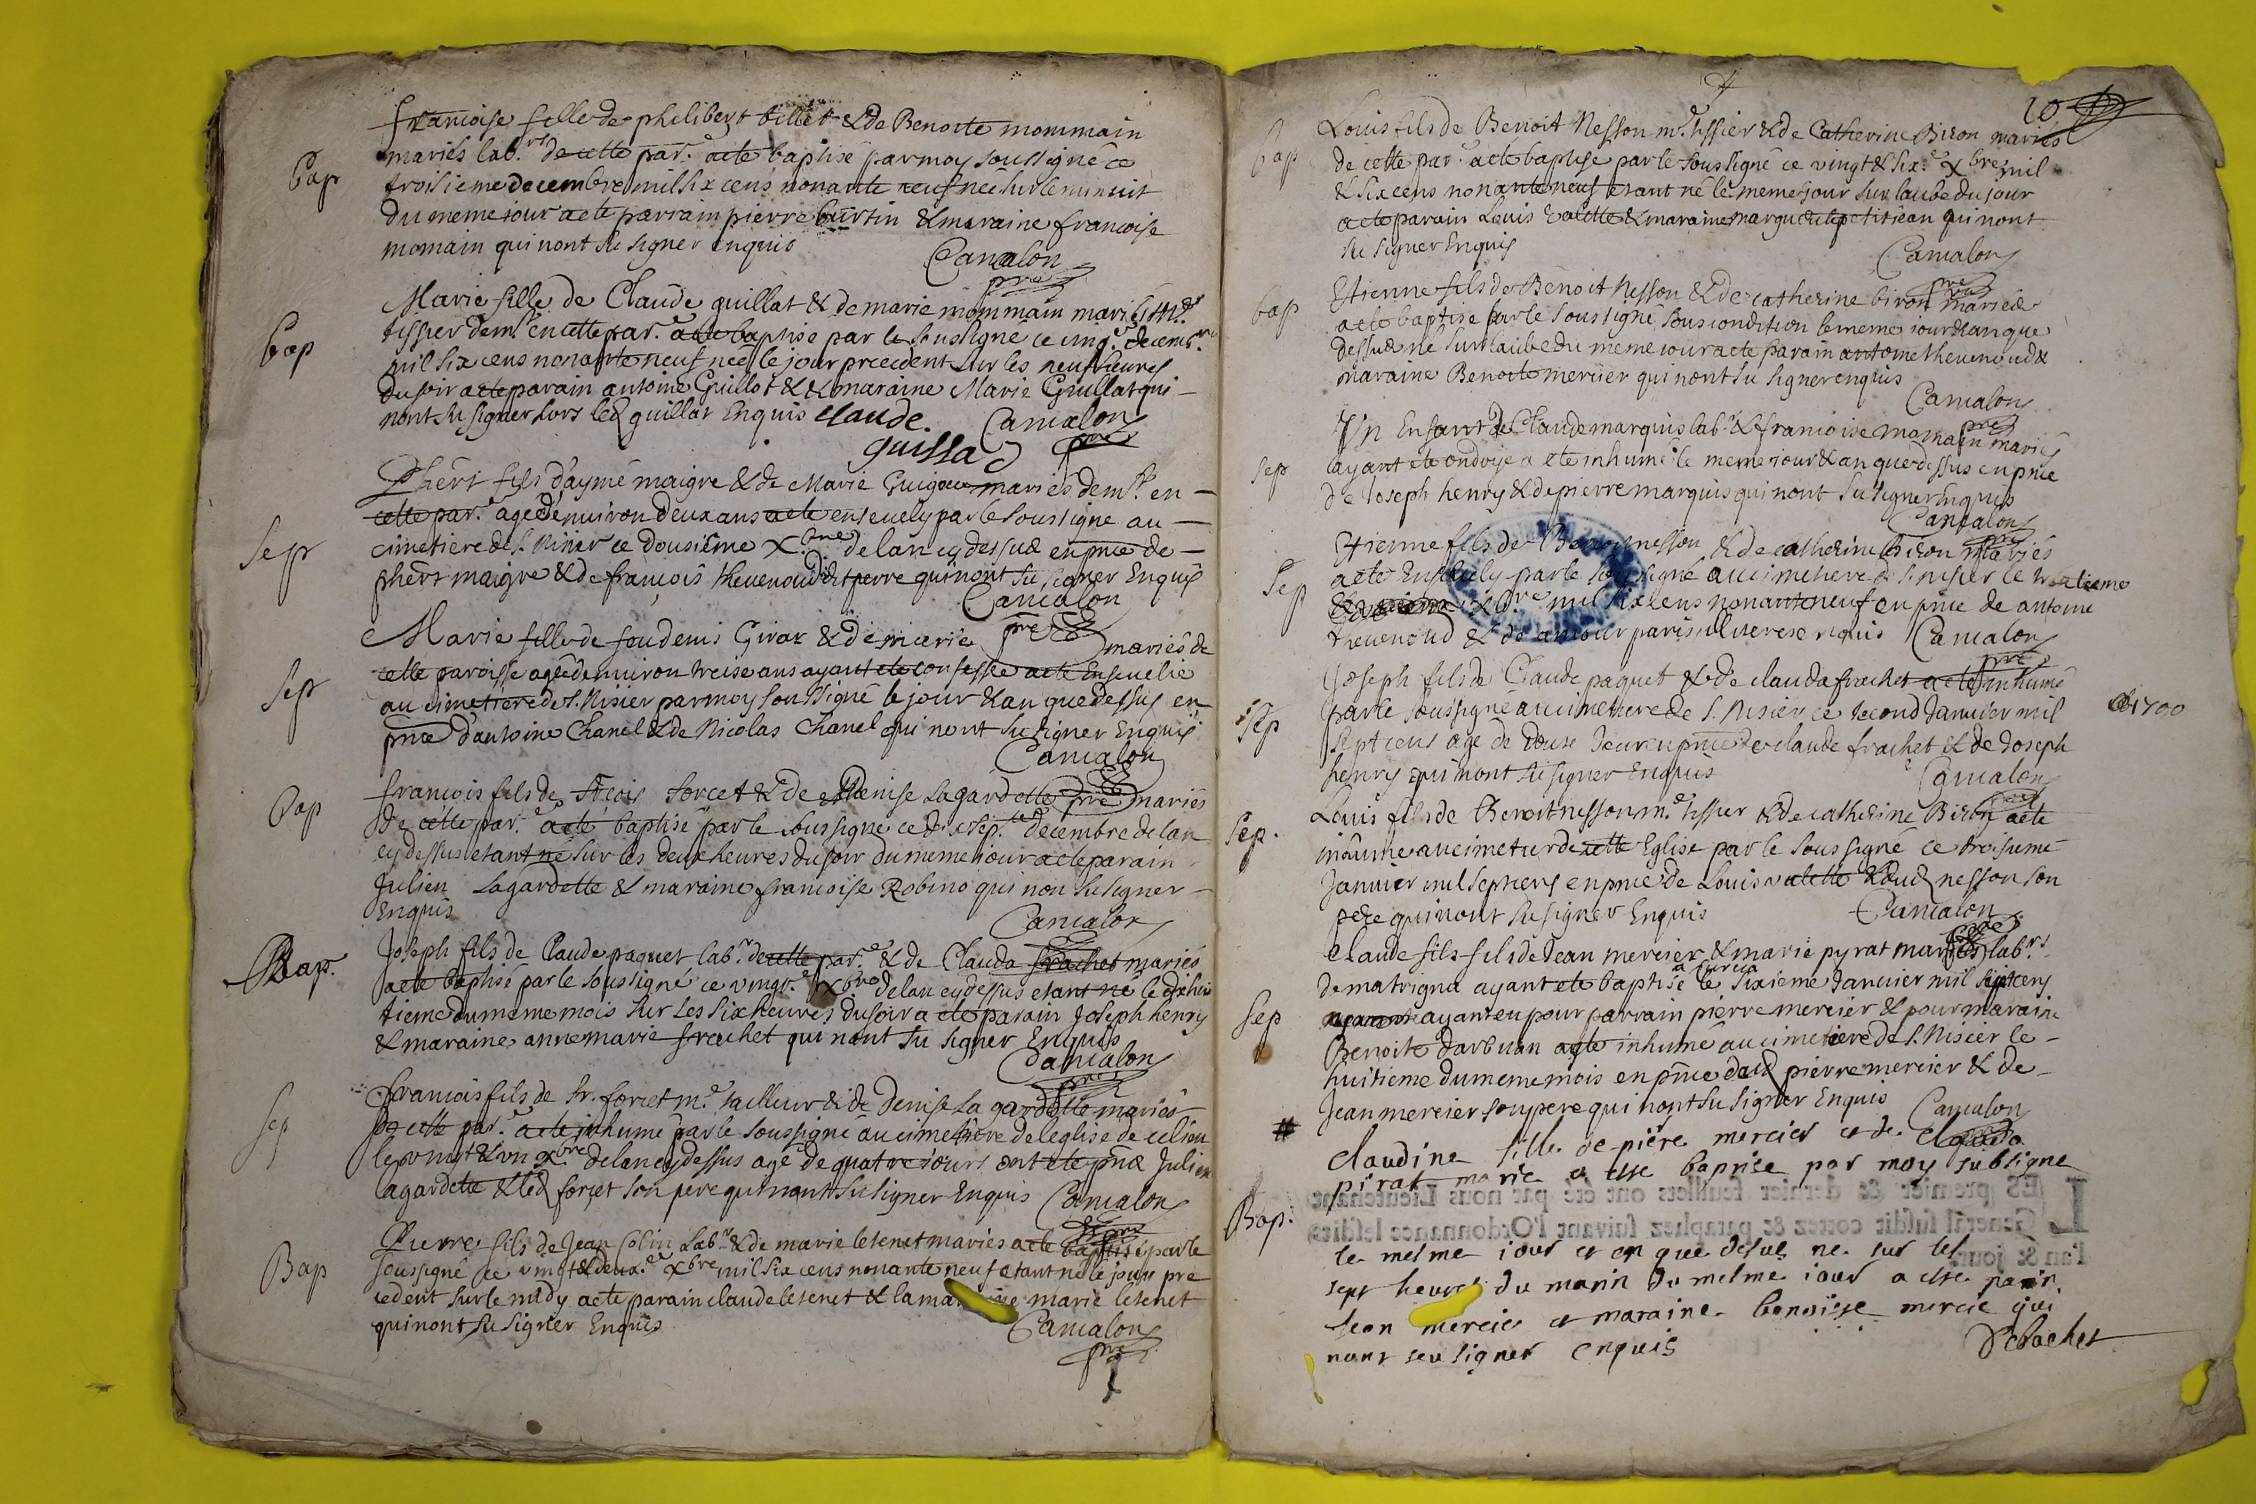 Bap
francoise fille de philibert billet & de Benoite mommain
mariés lab.rs de cette par.e a eté baptisé par moy soussigné ce
troisieme decembre mil six cens nonante neuf neé sur le minuit
du meme jour a eté parrain pierre burtin & maraine francoise
momain qui nont su signer enquis
Cancalon
pre
Bap
Marie fille de Claude guillat & de marie mommain mariés m.e
tissier dem.t en cette par.e a eté baptisé par le soussigné ce cinq.e decemb.re
mil six cens nonante neuf neé le jour precedent sur les neuf heures
du soir a eté parain antoine Guillot & maraine Marie Guillat qui
nont su signer hors led guillat Enquis claude
guillad
Cancalon
pre
Sep
Phert fils d'aymé maigre & de Marie mariés dem.t en
cette par.e agé d'enuiron deux ans a eté enseuely par le soussigné au
cimetiere de S. Nisier ce dousiéme X.bre de lan cy dessus en pnce de
phert maigre & de francois theuenoud qui nont su signer Enquis
Cancalon
pre
Sep
Marie fille de feu denis Giraz & de marie mariés de
cette paroisse ageé denuiron treise ans ayant eté confessé a eté Enseuelie
au cimetiere de S. Nisier par moy soussigné le jour & an que dessus en
pnce d'antoine Chanel & de Nicolas Chanel qui nont su signer Enquis
Cancalon
Bap
francois fils de forcet & de Denise Lagardette mariés
de cette par.e a eté baptisé par le soussigné ce dixsep.e decembre de lan
cy dessus etant né sur les deux heures du soir du meme jour a eté parain
Julien Lagardette & maraine francoise Robino qui non su signer
Enquis
Cancalon
Bap.
Joseph fils de Claude paquet lab.r de cette par.e & de Clauda frachet mariés
a eté baptisé par le soussigné ce vingt.e Xbre de lan cy dessus etant né le dixhui
tieme du meme mois sur les six heures du soir a eté parain Joseph henry
& maraine anne marie frachet qui nont su signer Enquis
Cancalon
pre
Sep
francois fils de fr. forcet m.e tailleur & de Denise La gardette mariés
de cette par.e a eté inhumé par le soussigné au cimetiere de leglise de ce lieu
le vingt & vn Xbre de lan cy dessus agé de quatre jours ont eté pns Julien
lagardette & led forcet son pere qui nont su signer Enquis
Cancalon
Bap
Pierre fils de Jean Colin Lab.r & de marie letenet mariés a eté baptisé par le
soussigné ce vingt & deux.e Xbre mil six cens nonante neuf etant né le jour pre
cedent sur le midy a eté parain claude letenet & la maraine marie letenet
qui nont su signer Enquis
Cancalon
pre
10
Bap
Louis fils de Benoit Nesson m.e tissier & de Catherine Biron mariés
de cette par.e a eté baptisé par le soussigné ce vingt & six.e Xbre mil
& six cens nonante neuf etant né le meme jour sur laube du jour
a eté parain Louis Valette & maraine marguerite petitiean qui nont
su signer Enquis
Cancalon
pre
bap
Etienne fils de Benoit Nesson & de catherine biron mariés
a eté baptisé par le soussigné sous condition le meme iour & an que
dessus né sur laube du meme iour a eté parain antoine theuenoud &
maraine Benoite mercier qui nont su signer enquis
Cancalon
pre
Sep
Vn Enfant de Claude marquis lab.r & francoise momain mariés
ayant eté ondoyé a eté inhumé le meme iour & an que dessus en pnce
de Joseph henry & de pierre marquis qui nont su signer enquis
Cancalon
pre
Sep
Etienne fils de Benoit nesson & de catherine biron mariés
a eté Enseuely par le soussigné au cimetiere de S. nisier le
Xbre mil six cens nonante neuf en pnce de antoine
theuenoud & de
Cancalon
pre
Sep
Joseph fils de Claude paquet & de clauda frachet a eté inhumé
par le soussigné au cimetiere de S. Nisier ce second Januier mil
1700
sept cens agé de douse Jour en pnce de claude frachet & de Joseph
henry qui nont su signer Enquis
Cancalon
Sep.
Louis fils de Benoit nesson m.e tissier & de catherine Biron a eté
inhumé au cimetiere de cette Eglise par le soussigné ce troisieme
Januier mil sept cens en pnce de Louis valette & dud nesson son
pere qui nont su signer Enquis
Cancalon
Sep
claude fils fils de Jean mercier & marie pyrat mariés lab.rs
de matrigna ayant eté baptisé le sixieme Januier mil sept cens
ayant eu pour parrain pierre mercier & pour maraine
Benoite darbuan a eté inhumé au cimetiere de S. Nisier le
huitieme du meme mois en pnce dud pierre mercier & de
Jean mercier son pere qui nont su signer Enquis
Cancalon
#
Bap.
claudine fille de piere mercier et de clauda
pirat marie a este baptise par moy subsigne
LES premier & dernier feuillets ont été par nous Lieutenant
General susdit cottez & paraphez suivant l'Ordonnance lesdits
l'an & jour
le mesme iour et an que desus ne sur les
sept heures du matin du mesme iour a este parin
Jean mercier et maraine benoiste mercie qui
nont seu signer enquis
Debachet